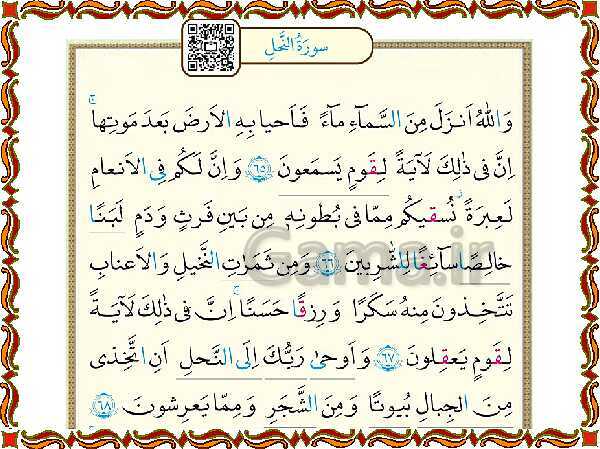 سورَةُ النَّحلِ
وَاللّٰهُ اَنزَلَ مِنَ السَّماءِ ماءً فَاَحيا بِهِ الاَرضَ بَعدَ مَوتِها ۚ
اِنَّ فى ذٰلِكَ لَآيَةً لِقَومٍ يَسمَعونَ ٦٥ وَ اِنَّ لَكُم فِى الاَنعامِ
لَعِبرَةً ۖ نُسقيكُم مِمّا فى بُطونِه۪ مِن بَينِ فَرثٍ وَ دَمٍ لَبَنًا
خالِصًا سآئِغًا لِلشّٰرِبينَ ٦٦ وَ مِن ثَمَراتِ النَّخيلِ وَ الاَعنابِ
Gama.ir
تَتَّخِذونَ مِنهُ سَكَرًا وَ رِزقًا حَسَنًا ۚ اِنَّ فى ذٰلِكَ لَآيَةً
لِقَومٍ يَعقِلونَ ٦٧ وَ اَوحىٰ رَبُّكَ اِلَى النَّحلِ اَنِ اتَّخِذى
مِنَ الجِبالِ بُيوتًا وَ مِنَ الشَّجَرِ وَ مِمّا يَعرِشونَ ٦٨